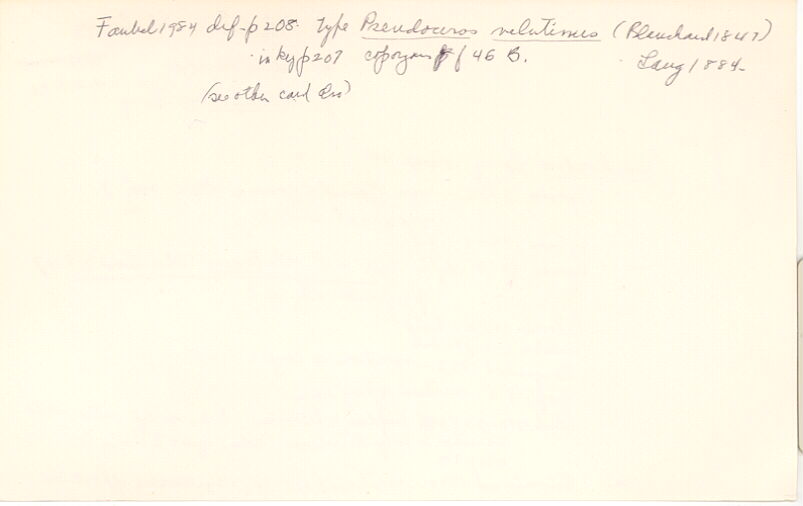 Faubel 1984 def-p 208. Type Pseudoceros velutinus (Blanchard 1847)
in key p 207 cop organs f 46 B. Lang 1884-
(see other card also)